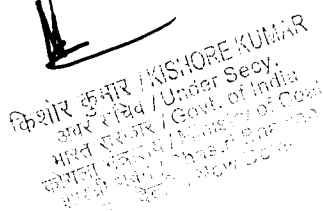 किशोर कुमार / KISHORE KUMAR
अवर सचिव / Under Secy.
भारत सरकार / Govt. of India
कोयला मंत्रालय / Ministry of Coal
New Delhi